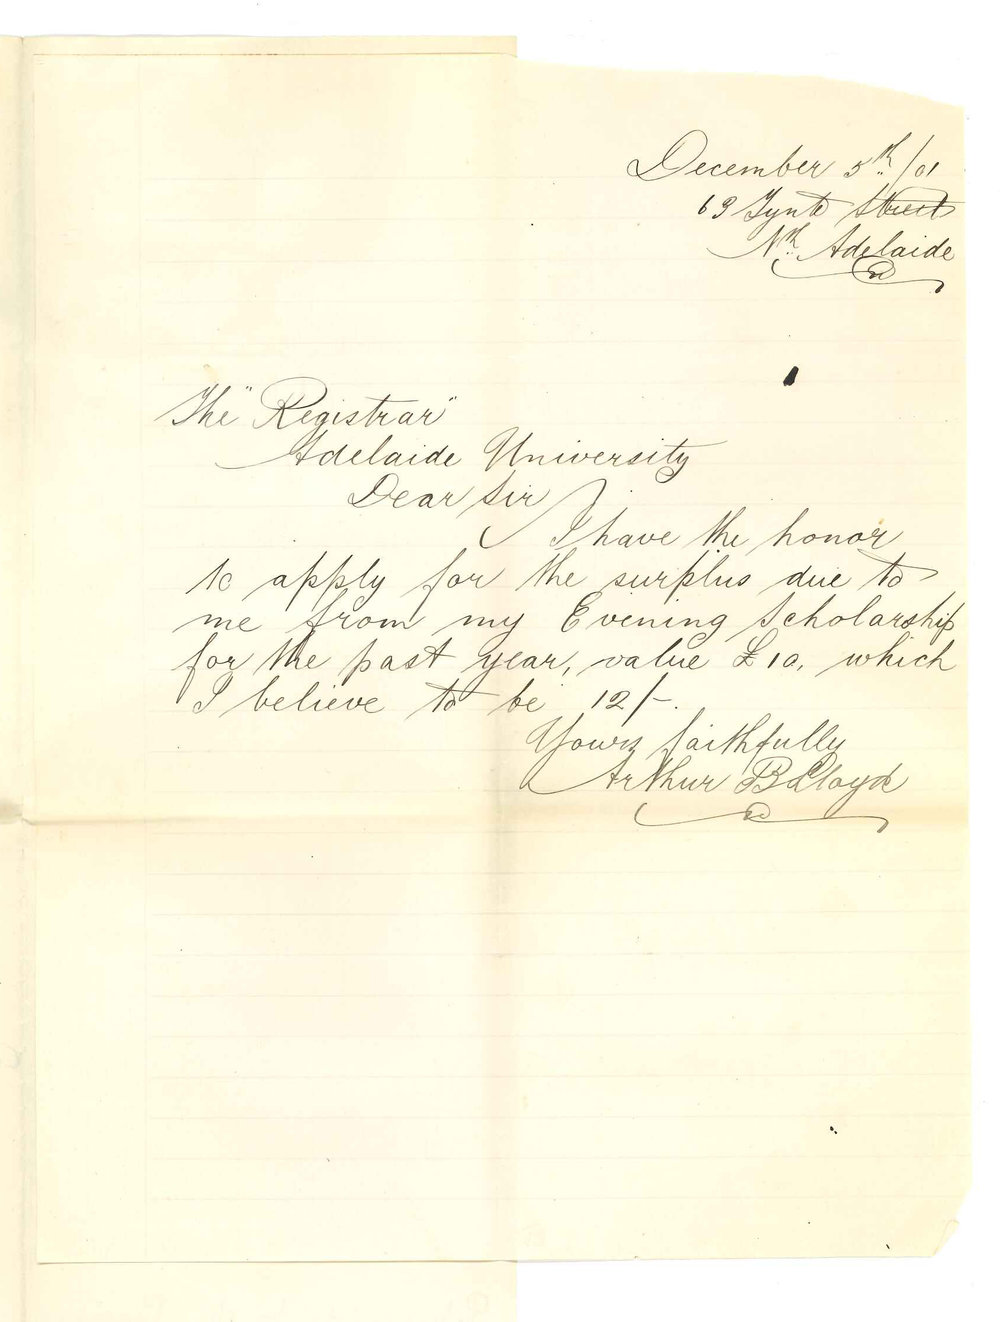 December 5th/01
63 Tynte Street
Nth Adelaide
The "Registrar"
Adelaide University
Dear Sir
I have the honor
to apply for the surplus due to
me from my Evening Scholarship
for the past year, value £10, which
I believe to be 12/-.
Yours faithfully
Arthur B Lloyd